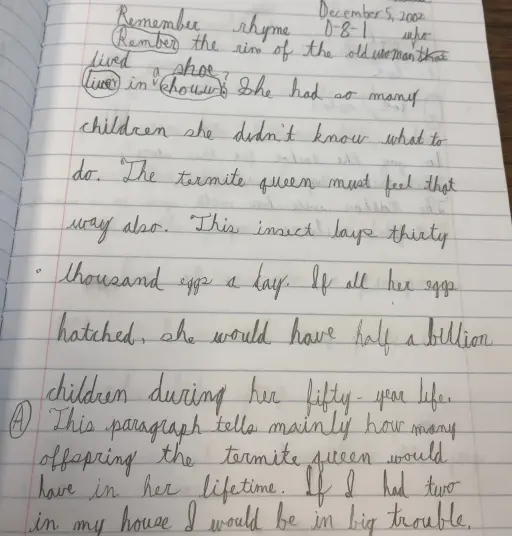 December 5, 2002
Remember rhyme 0-8-1 who
Rember the rim of the old woman that
lived a shoe?
liver in chouwn? She had so many
children she didn't know what to
do. The termite queen must feel that
way also. This insect lays thirty
thousand eggs a day. If all her eggs
hatched, she would have half a billion
children during her fifty-year life.
A This paragraph tells mainly how many
offspring the termite queen would
have in her lifetime. If I had two
in my house I would be in big trouble.